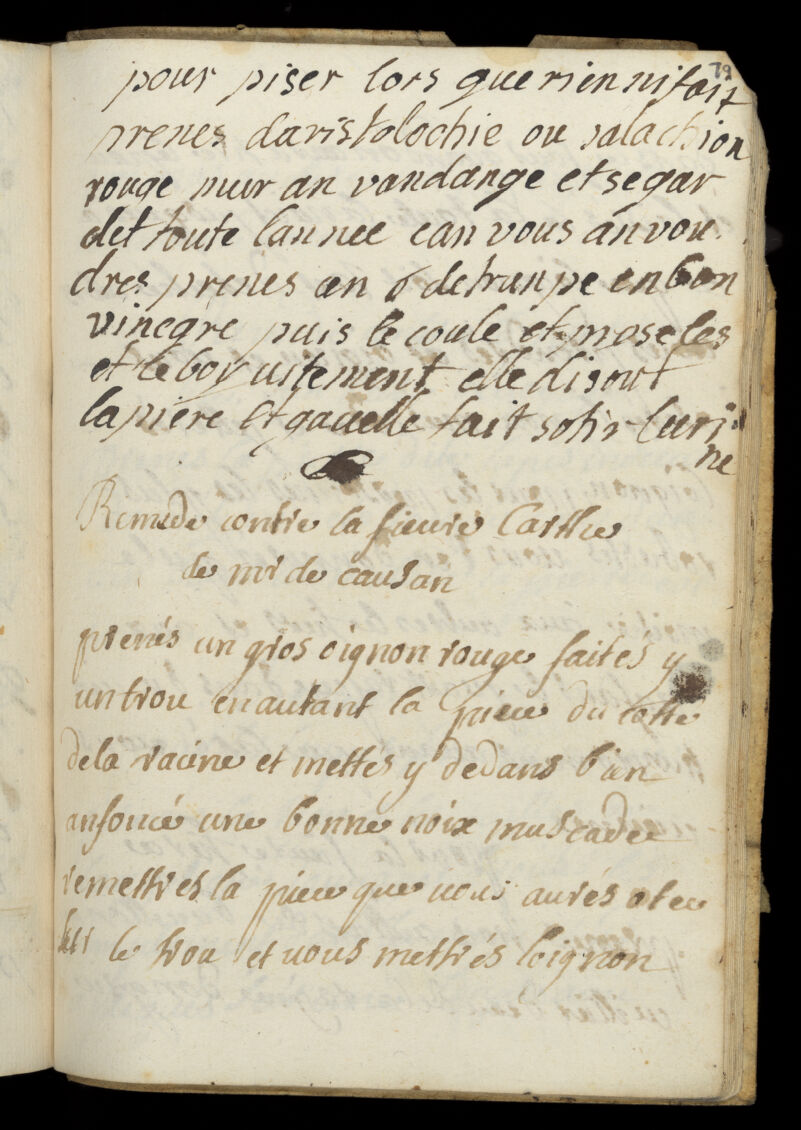 79
pour piser lors que rien ni fait
prenes daristolochie ou salachion
rouge mur an vandange et se gar
det toute lannee can vous an vou
dres prenes an 6 detranpe en bon
vinegre puis le coule et
et le boy uitement elle disout
la piere et gauelle fait sotir leuri
ne
Remede contre la fieure Cartke
de mr de causan
prenés un gros oignon rouge faites y
un trou en autant la piece du cotte
de la racine et mettés y dedans b'an
anfoncé une bonne noix muscadee
remettres la piece que uous aurés otee
sur le trou et uous mettrés loignon